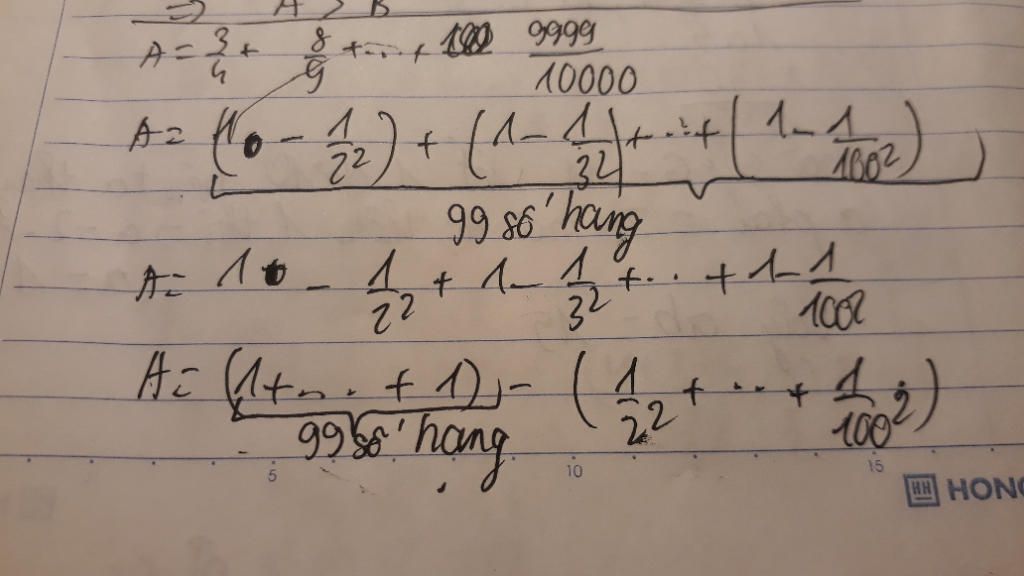 => A > B
A = 3/4 + 8/9 + ... + 9999/10000
A = (1 - 1/2²) + (1 - 1/3²) + ... + (1 - 1/100²)
99 số hang
A = 1 - 1/2² + 1 - 1/3² + ... + 1 - 1/100²
A = (1 + ... + 1) - (1/2² + ... + 1/100²)
99 số hang
5 10 15
HH HONG